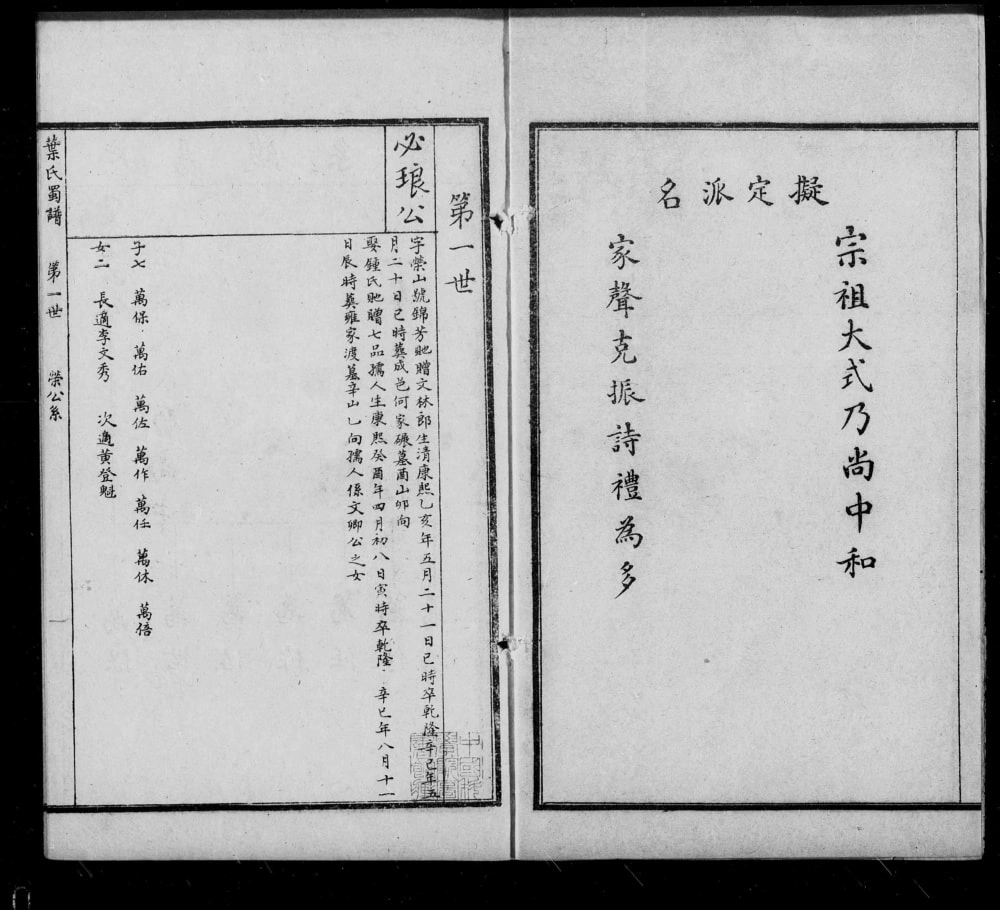 擬定派名
宗祖大式乃尚中和
家聲克振詩禮為多
第一世
必琅公
字榮山號錦芳貤贈文林郎生清康熙乙亥年五月二十一日巳時卒乾隆辛巳年五
月二十日巳時葬成邑何家碾墓酉山卯向
娶鍾氏貤贈七品孺人生康熙癸酉年四月初八日寅時卒乾隆辛巳年八月十一
日辰時葬雍家渡墓辛山乙向孺人係文卿公之女
子七 萬保 萬佑 萬佐 萬作 萬任 萬休 萬倍
女二 長適李文秀 次適黃登魁
葉氏蜀譜 第一世 榮公系 一